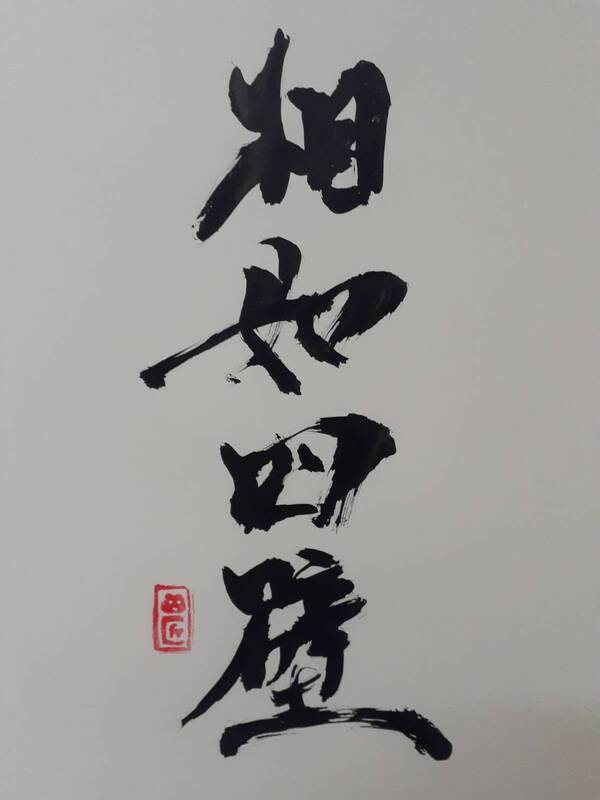 相如四壁